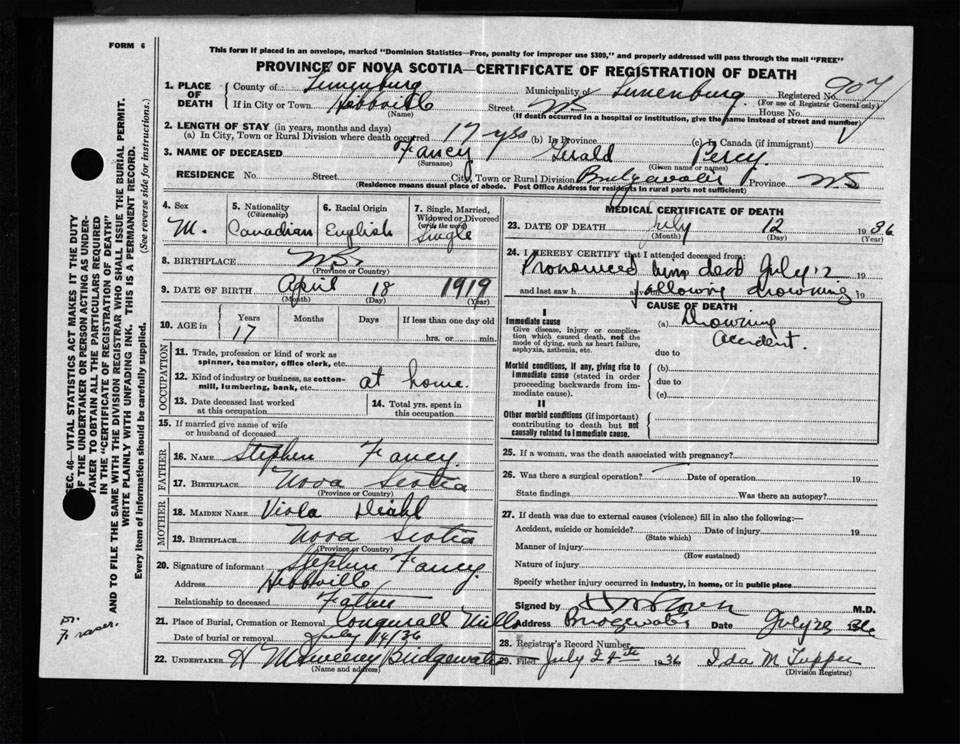 FORM 6
This form if placed in an envelope, marked "Dominion Statistics—Free, penalty for improper use $300," and properly addressed will pass through the mail "FREE"
PROVINCE OF NOVA SCOTIA—CERTIFICATE OF REGISTRATION OF DEATH
1. PLACE OF DEATH
County of Lunenburg Municipality of Lunenburg Registered No. 907
(For use of Registrar General only)
If in City or Town Hebbville Street NS House No.
(Name) (If death occurred in a hospital or institution, give the name instead of street and number)
2. LENGTH OF STAY (in years, months and days)
(a) In City, Town or Rural Division where death occurred 17 yrs (b) In Province (c) In Canada (if immigrant)
3. NAME OF DECEASED Fancy Gerald Percy
(Surname) (Given name or names)
RESIDENCE No. Street City, Town or Rural Division Bridgewater Province NS
(Residence means usual place of abode. Post Office Address for residents in rural parts not sufficient)
4. Sex M.
5. Nationality (Citizenship) Canadian
6. Racial Origin English
7. Single, Married, Widowed or Divorced (write the word) Single
8. BIRTHPLACE NS
(Province or Country)
9. DATE OF BIRTH April 18 1919
(Month) (Day) (Year)
10. AGE in Years Months Days If less than one day old
17 hrs. or min.
OCCUPATION
11. Trade, profession or kind of work as spinner, teamster, office clerk, etc.
12. Kind of industry or business, as cotton-mill, lumbering, bank, etc. at home.
13. Date deceased last worked at this occupation
14. Total yrs. spent in this occupation
15. If married give name of wife or husband of deceased
FATHER
16. NAME Stephen Fancy
17. BIRTHPLACE Nova Scotia
(Province or Country)
MOTHER
18. MAIDEN NAME Viola Diehl
19. BIRTHPLACE Nova Scotia
(Province or Country)
20. Signature of informant Stephen Fancy
Address Hebbville
Relationship to deceased Father
21. Place of Burial, Cremation or Removal Conquerall Mills
Date of burial or removal July 14/36
22. UNDERTAKER H Maweeney Bridgewater
(Name and address)
MEDICAL CERTIFICATE OF DEATH
23. DATE OF DEATH July 12 1936
(Month) (Day) (Year)
24. I HEREBY CERTIFY that I attended deceased from:
Pronounced him dead July 12 19
and last saw h alive following drowning 19
CAUSE OF DEATH
I
Immediate cause
Give disease, injury or complication which caused death, not the mode of dying, such as heart failure, asphyxia, asthenia, etc.
(a) Drowning
Accident.
due to
Morbid conditions, if any, giving rise to immediate cause (stated in order proceeding backwards from immediate cause).
(b)
due to
(c)
II
Other morbid conditions (if important) contributing to death but not causally related to immediate cause.
25. If a woman, was the death associated with pregnancy?
26. Was there a surgical operation? Date of operation 19
State findings Was there an autopsy?
27. If death was due to external causes (violence) fill in also the following:—
Accident, suicide or homicide? Date of injury 19
(State which)
Manner of injury
(How sustained)
Nature of injury
Specify whether injury occurred in industry, in home, or in public place
Signed by M.D.
Address Bridgewater Date July 23 36
28. Registrar's Record Number
29. Filed July 24th 1936 Ida M Tupper
(Division Registrar)
SEC. 46—VITAL STATISTICS ACT MAKES IT THE DUTY
OF THE UNDERTAKER OR PERSON ACTING AS UNDERTAKER TO OBTAIN ALL THE PARTICULARS REQUIRED
IN THE "CERTIFICATE OF REGISTRATION OF DEATH"
AND TO FILE THE SAME WITH THE DIVISION REGISTRAR WHO SHALL ISSUE THE BURIAL PERMIT.
WRITE PLAINLY WITH UNFADING INK. THIS IS A PERMANENT RECORD.
Every item of information should be carefully supplied. (See reverse side for instructions.)
Dr. Fraser.